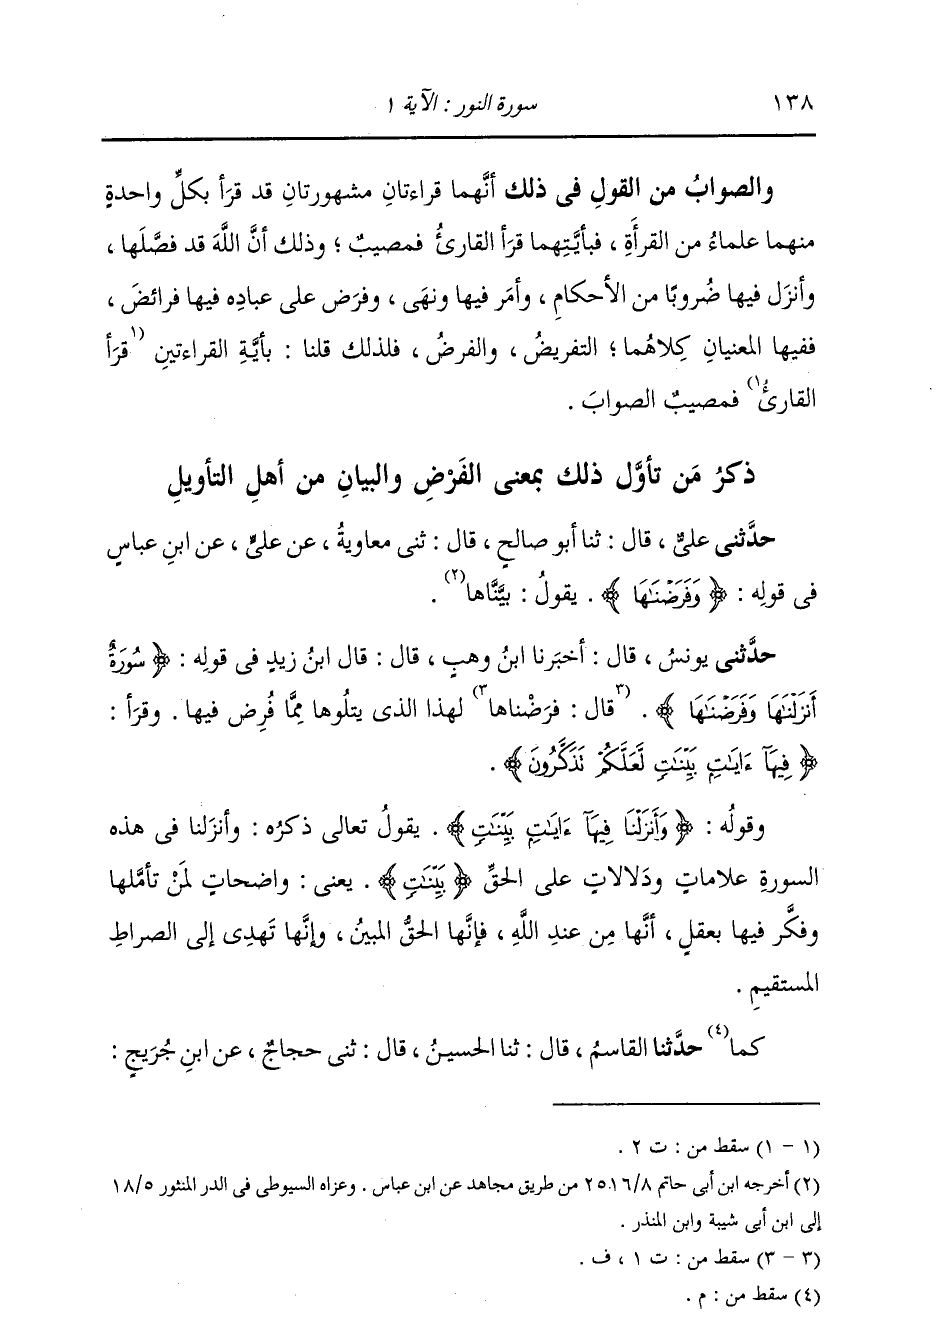 ١٣٨ سورة النور : الآية ١
والصوابُ من القولِ فى ذلك أنَّهما قراءتانِ مشهورتانِ قد قرَأ بكلٍّ واحدةٍ
منهما علماءُ من القرأَةِ ، فبأيَّتِهما قرَأ القارئُ فمصيبٌ ؛ وذلك أنَّ اللَّهَ قد فصَّلَها ،
وأنزَل فيها ضُروبًا من الأحكامِ ، وأمَر فيها ونهَى ، وفرَض على عبادِه فيها فرائضَ ،
ففيها المعنيانِ كِلاهُما ؛ التفريضُ ، والفرضُ ، فلذلك قلنا : بأيَّةِ القراءتينِ (١قرَأ
القارئُ١) فمصيبٌ الصوابَ .
ذكرُ مَن تأوَّل ذلك بمعنى الفَرْضِ والبيانِ من أهلِ التأويلِ
حدَّثنى علىٌّ ، قال : ثنا أبو صالحٍ ، قال : ثنى معاويةُ ، عن علىٍّ ، عن ابنِ عباسٍ
فى قولِه : ﴿ وَفَرَضْنَٰهَا ﴾ . يقولُ : بيَّنَّاها(٢) .
حدَّثنى يونسُ ، قال : أخبَرنا ابنُ وهبٍ ، قال : قال ابنُ زيدٍ فى قولِه : ﴿ سُورَةٌ
أَنزَلْنَٰهَا وَفَرَضْنَٰهَا ﴾ . (٣قال : فرَضْناها٣) لهذا الذى يتلُوها مِمَّا فُرِض فيها . وقرَأ :
﴿ فِيهَآ ءَايَٰتٍۭ بَيِّنَٰتٍ لَّعَلَّكُمْ تَذَكَّرُونَ ﴾ .
وقولُه : ﴿ وَأَنزَلْنَا فِيهَآ ءَايَٰتٍۭ بَيِّنَٰتٍ ﴾ . يقولُ تعالى ذكرُه : وأنزَلنا فى هذه
السورةِ علاماتٍ ودَلالاتٍ على الحقِّ ﴿ بَيِّنَٰتٍ ﴾ . يعنى : واضحاتٍ لمَنْ تأمَّلها
وفكَّر فيها بعقلٍ ، أنَّها مِن عندِ اللَّهِ ، فإنَّها الحقُّ المبينُ ، وإنَّها تَهدِى إلى الصراطِ
المستقيمِ .
كما(٤) حدَّثنا القاسمُ ، قال : ثنا الحسينُ ، قال : ثنى حجاجٌ ، عن ابنِ جُرَيجٍ :
(١ - ١) سقط من : ت ٢ .
(٢) أخرجه ابن أبى حاتم ٨/ ٢٥١٦ من طريق مجاهد عن ابن عباس . وعزاه السيوطى فى الدر المنثور ١٨/٥
إلى ابن أبى شيبة وابن المنذر .
(٣ - ٣) سقط من : ت ١ ، ف .
(٤) سقط من : م .